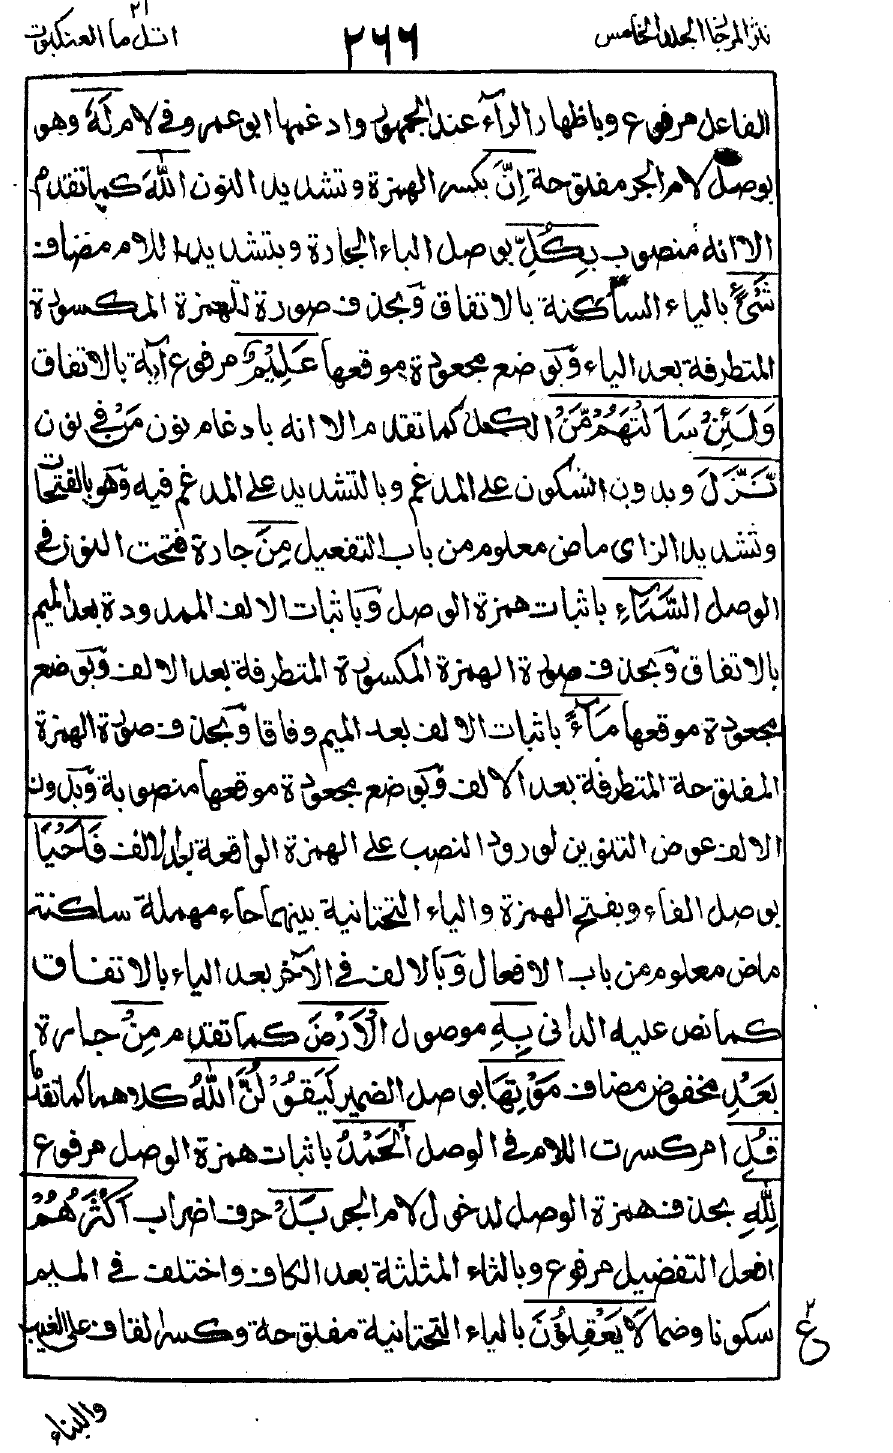 نثر المرجان الجلد الخامس
٢٦٦
اتل ما العنكبوت
٢١
الفاعل مرفوع وباظهار الرآء عند الجمهور وادغمها ابو عمرو في لام لَهٗ وهو
بوصل لام الجر مفتوحة اِنَّ بكسر الهمزة وتشديد النون اللّٰهَ كما تقدم
الا انه منصوب بِكُلِّ بوصل الباء الجارة وبتشديد اللام مضاف
شَىْءٍ بالياء الساكنة بالاتفاق وَبحذف صورة للهمزة المكسورة
المتطرفة بعد الياء وَبوضع مجعودة موقعها عَلِيْمٌ مرفوع آية بالاتفاق
وَلَئِنْ سَاَلْتَهُمْ مَّنْ الكل كما تقدم الا انه بادغام نون مَنْ في نون
نَّزَّلَ وبدون السكون على المدغم وبالتشديد على المدغم فيه وَهو بالفتحات
وتشديد الزاى ماض معلوم من باب التفعيل مِنَ جارة فتحت النون في
الوصل السَّمَآءِ باثبات همزة الوصل وَباثبات الالف الممدودة بعد الميم
بالاتفاق وَبحذف صورة الهمزة المكسورة المتطرفة بعد الالف وَبوضع
مجعودة موقعها مَآءً باثبات الالف بعد الميم وفاقا وَبحذف صورة الهمزة
المفتوحة المتطرفة بعد الالف وَبوضع مجعودة موقعها منصوبة وَبدون
الالف عوض التنوين لورود النصب على الهمزة الواقعة بعد الالف فَاَحْيَا
بوصل الفاء وبفتح الهمزة والياء التحتانية بينهما حاء مهملة ساكنة
ماض معلوم من باب الافعال وَبالالف في الآخر بعد الياء بالاتفاق
كما نص عليه الدانى بِهِ موصول الْاَرْضَ كما تقدم مِنْ جارة
بَعْدِ مخفوض مضاف مَوْتِهَا بوصل الضمير لَيَقُوْلُنَّ اللّٰهُ كلاهما كما تقدما
قُلِ امر كسرت اللام في الوصل الْحَمْدُ باثبات همزة الوصل مرفوع
لِلّٰهِ بحذف همزة الوصل لدخول لام الجر بَلْ حرف اضراب اَكْثَرُهُمْ
افعل التفضيل مرفوع وبالثاء المثلثة بعد الكاف واختلف في الميم
سكونا وضما لَا يَعْقِلُوْنَ بالياء التحتانية مفتوحة وكسر القاف على الغيب
ع
٢
والبناء